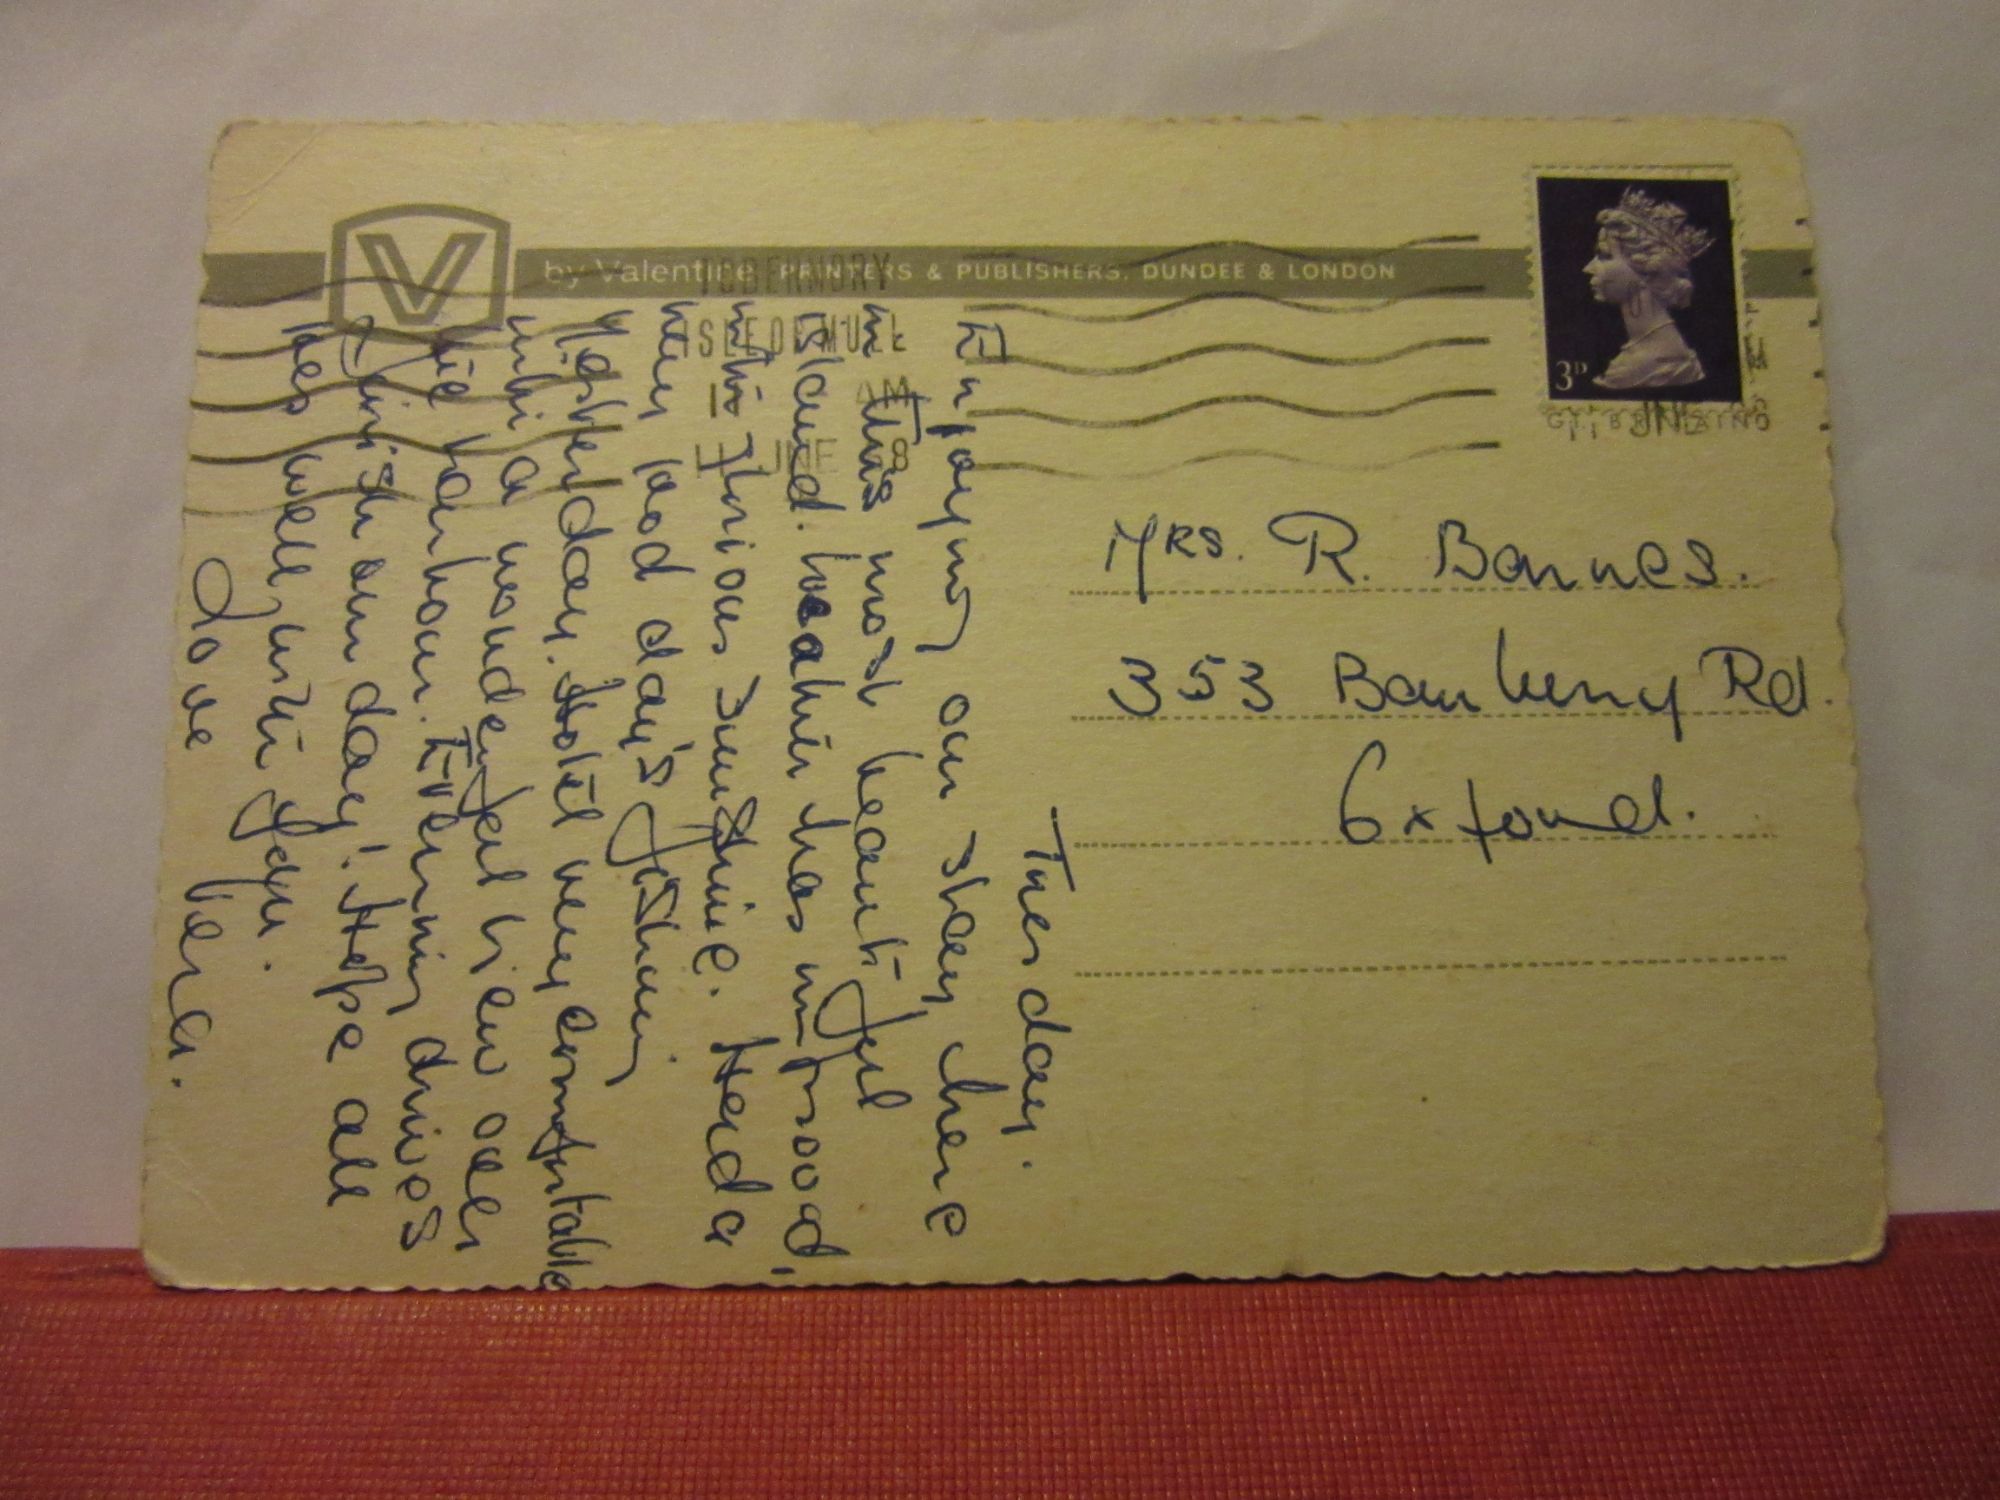 by Valentine PRINTERS & PUBLISHERS, DUNDEE & LONDON
TOBERMORY
ISLE OF MULL
AM
JNE
3D
Mrs. R. Barnes.
353 Banbury Rd.
Oxford.
Tuesday.
Enjoying our stay here
in this most beautiful
Island. Weather has improved,
with glorious sunshine. Had a
very good day's fishing
Yesterday. Hotel very comfortable
with a wonderful view over
the harbour. Evening drives
finish our day! Hope all
goes well with you.
Love Vera.